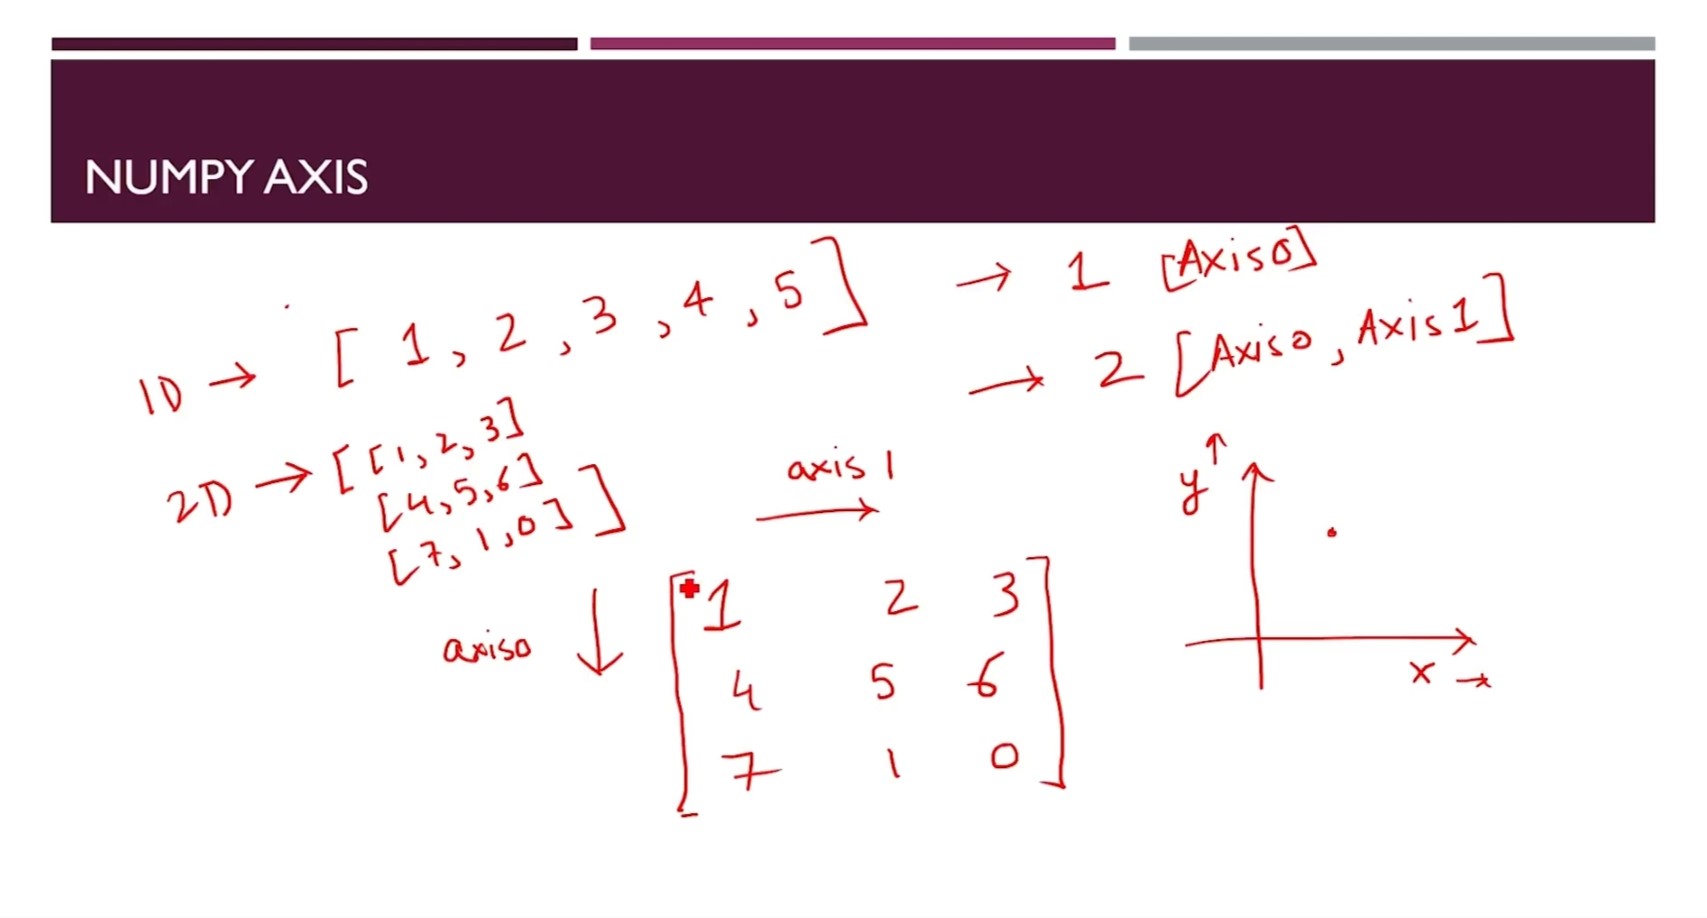 NUMPY AXIS
1D → [ 1, 2, 3, 4, 5 ] → 1 [Axis0]
→ 2 [Axis0, Axis1]
2D → [[1, 2, 3]
[4, 5, 6]
[7, 1, 0] ]
axis 1
axis0
1 2 3
4 5 6
7 1 0
y
x